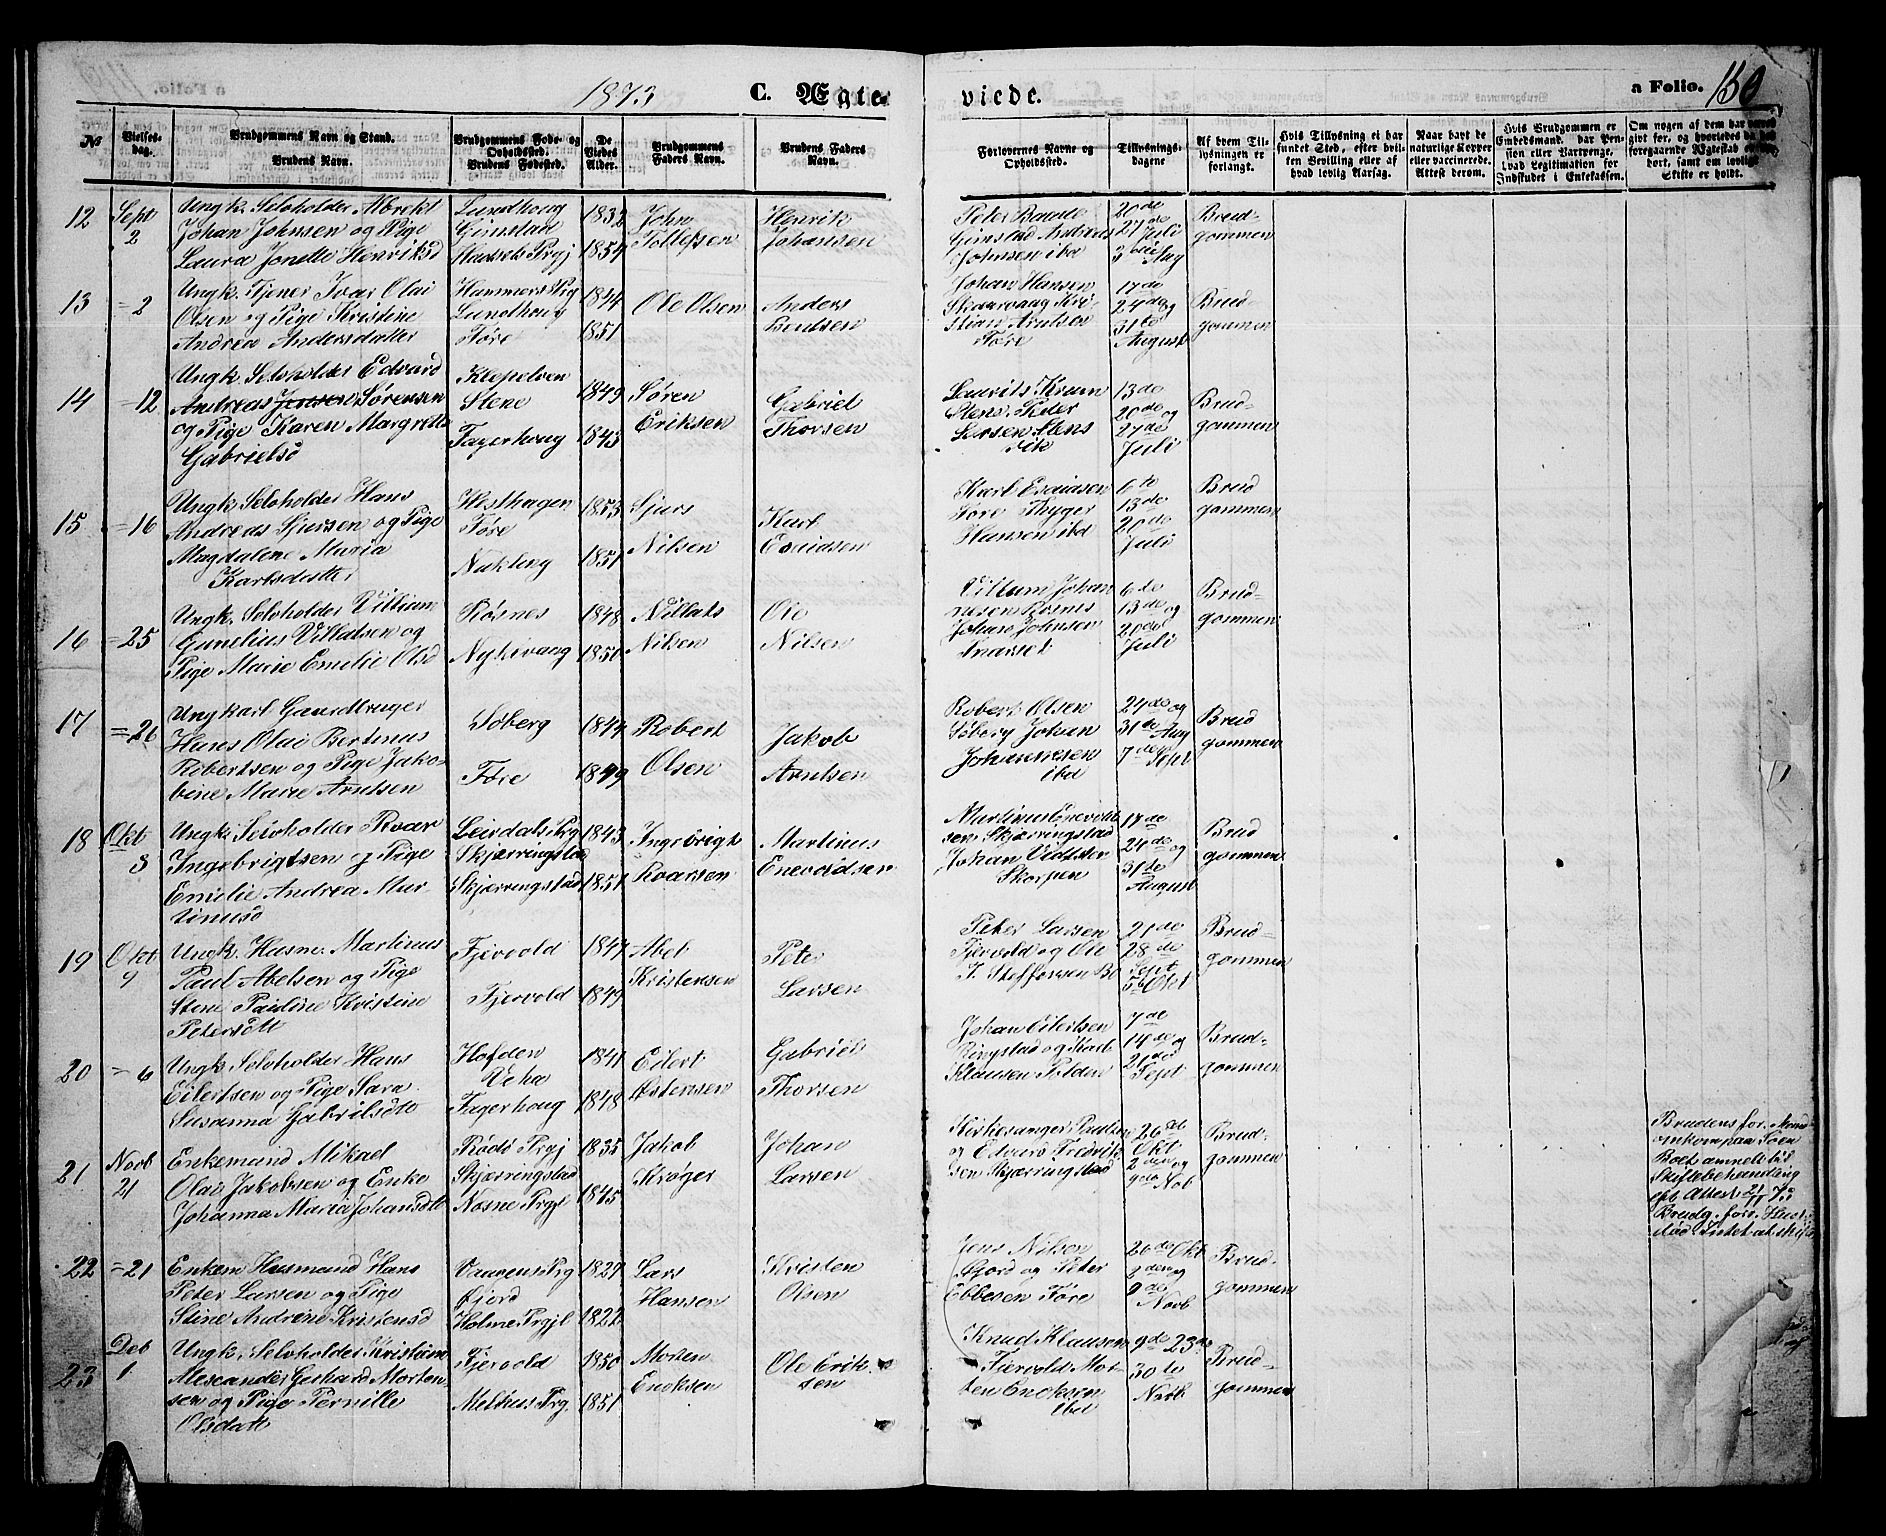 1873
C. Ægte
viede.
a Folio. 150
No
Vielses-dag.
Brudgommens Navn og Stand.
Brudens Navn.
Brudgommens Føde- og Opholdsted.
Brudens Fødested.
De Viedes Alder.
Brudgommens Faders Navn.
Brudens Faders Navn.
Forlovernes Navne og Opholdsted.
Tillysnings-dagene.
Af hvem Tillysningen er forlangt.
Hvis Tillysning ei har fundet Sted, efter hvilken Bevilling eller af hvad lovlig Aarsag.
Naar havt de naturlige Kopper eller vaccinerede. Attest derom.
Hvis Brudgommen er Embedsmand, har Pension eller Vartpenge, hvad Legitimation for Indskudet i Enkekassen.
Om nogen af dem har været gift før, og hvorledes da det foregaaende Ægteskab er hævet, samt om lovligt Skifte er holdt.
12 Sept 2
Ungk. Selvholder Albrekt
Johan Johnsen og Pige
Laura Jonette Henriksd
Lundhoug
Gimstad
Hadsels Prgj
1832
1854
John
Tollefsen
Henrik
Johansen
Peter
Gimstad Andreas
Johnsen ibd
20de
27de Juli
3die Aug
Brud-
gommen
13 = 2
Ungk. Tjener Ivar Olai
Olsen og Pige Kristine
Andrea Andersdatter
Hammers Prg
Lundhoug
Føre
1844
1851
Ole Olsen
Anders
Bentsen
Johan Hansen
Skaarvaag Kri-
stian Arntsen
Føre
17de
24de og
31te
August
Brud-
gommen
14 = 12
Ungk. Selvholder Edvard
Andreas Jensen Sørensen
og Pige Karen Margrethe
Gabrielsd
Klepelven
Stene
Fagerhoug
1849
1843
Søren
Eriksen
Gabriel
Thorsen
Laurits Krum
Stene Peder
Larsen Stens
vik
13de
20de og
27de
Juli
Brud-
gommen
15 = 16
Ungk. Selvholder Hans
Andreas Sjursen og Pige
Magdalene Maria
Karlsdatter
Hesthagen
Føre
Nakling
1853
1851
Sjurs
Nilsen
Karl
Esaiasen
Karl Esaiasen
Føre Thyger
Hansen ibd
6te
13de
20de
Juli
Brud
gommen
16 = 25
Ungk. Selvholder Villium
Cunelius Villatsen og
Pige Marie Emelie Olsd
Røsnes
Nykvaag
1848
1850
Villats
Nilsen
Ole
Nilsen
Villum Johan
nesen Røsnes
Johan Johnsen
6te
13de og
20de
Juli
Brud-
gommen
17 = 26
Ungkarl Gaardbruger
Hans Olai Bertinus
Robertsen og Pige Jako-
bine Marie Arntsen
Søberg
Føre
1844
1849
Robert
Olsen
Jakob
Arntsen
Robert Olsen
Søberg Johan
Johannesen
ibd
24de og
31te Aug
7de Sept
Brud
gommen
18 Okt 3
Ungk. Selvholder Roar
Ingebrigtsen og Pige
Emilie Andrea Mar
tinusd
Leirdals Prg
Skjærringstad
Skjærringstad
1843
1851
Ingebrigt
Roarsen
Martinus
Enevoldsen
Martinus Enevold
sen Skjærringstad
Johan
Skorpen
17de
24de og
31te
August
Brud
gommen
19 Okt 9
Ungk. Husm. Martinus
Paul Abelsen og Pige
Stine Pauline Kristine
Petersdtt
Fjervold
Fjervold
1847
1849
Abel
Kristensen
Peter
Larsen
Peter Larsen
Fjervold og Ole
J. Steffensen Bø
21de
28de
Sept
5te Okt
Brud-
gommen
20 = 6
Ungk. Selvholder Hans
Eilertsen og Pige Sara
Susanna Gabrielsdtt
Hofden
Veha
Fagerhoug
1841
1848
Eilert
Østensen
Gabriel
Thorsen
Johan Eilertsen
Ringstad og Karl
Klausen Polden
7de
14de og
21de
Sept
Brud-
gommen
21 Novb 21
Enkemand Mikael
Olai Jakobsen og Enke
Johanna Maria Johansdtt
Rødø Prgj
Skjærringstad
Nesne Prgj
1835
1845
Jakob
Krøger
Johan
Larsen
Kirkesanger Paulsen
og Edvard Fredrik
sen Skjærringstad
26de
Okt
2den og
9de Nob
Brud-
gommen
Brudens for. Mand
omkom paa Søen
Boet anmeldt til
Skiftebehandling
eft. Attest 21/11 73
Brudg. forr. Hust.
død. Intet at skifte
22 = 21
Enkem Husmand Hans
Peter Larsen og Pige
Stine Andrine Kristensd
Vaagens Prg
Gjerd
Holme Prgjl
1827
1822
Lars
Hansen
Kristen
Olsen
Jens Nilsen
Gjerd og Peter
Ebbesen Føre
26de Okt
2den og
9de
Novb
Brud-
gommen
23 Deb 1
Ungk. Selvholder Kristian
Alexander Gerhard Morten-
sen og Pige Pernille
Olsdatt
Fjervold
Melhus Prg.
1850
1851
Morten
Enoksen
Ole Erik
sen
Knud Klausen
Fjervold Mor-
ten Enoksen
ibd
9de 23de
30te
Novb
Brud-
gommen